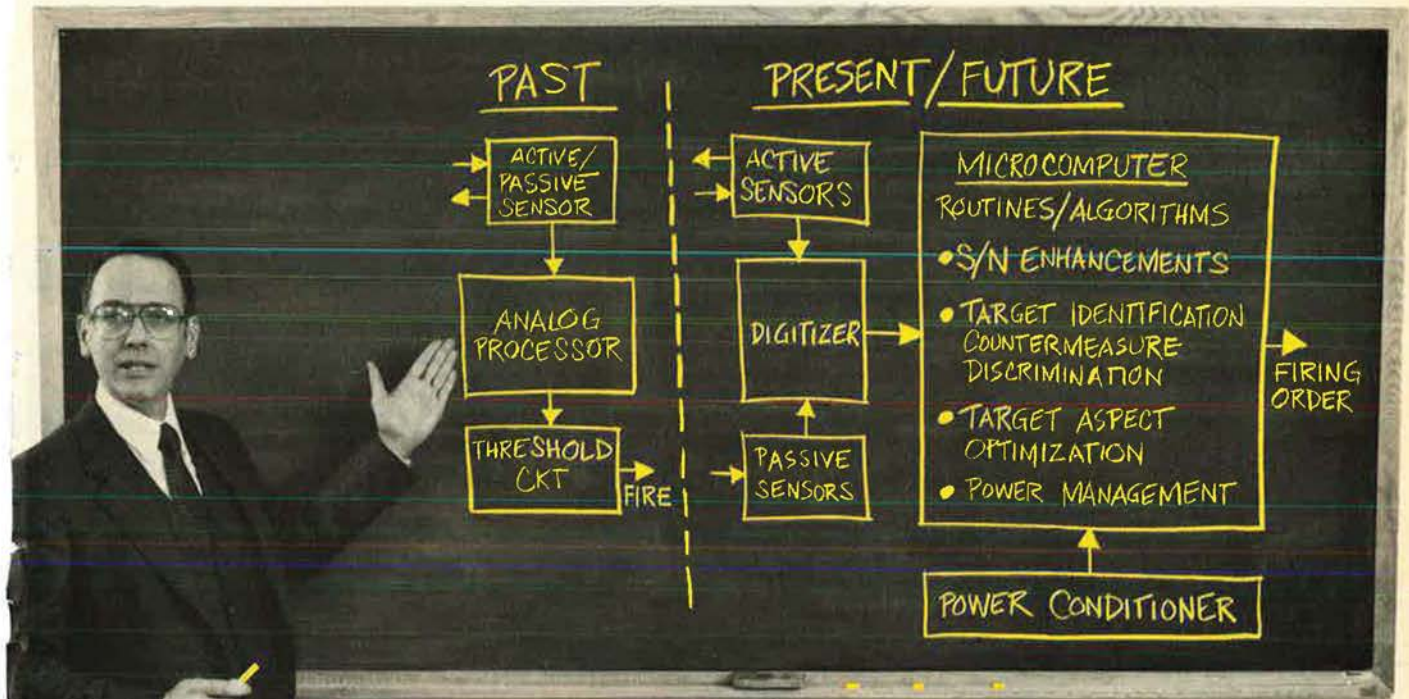 PAST
ACTIVE/
PASSIVE
SENSOR
ANALOG
PROCESSOR
THRESHOLD
CKT
FIRE
PRESENT/FUTURE
ACTIVE
SENSORS
DIGITIZER
PASSIVE
SENSORS
MICROCOMPUTER
ROUTINES/ALGORITHMS
• S/N ENHANCEMENTS
• TARGET IDENTIFICATION
COUNTERMEASURE
DISCRIMINATION
• TARGET ASPECT
OPTIMIZATION
• POWER MANAGEMENT
FIRING
ORDER
POWER CONDITIONER